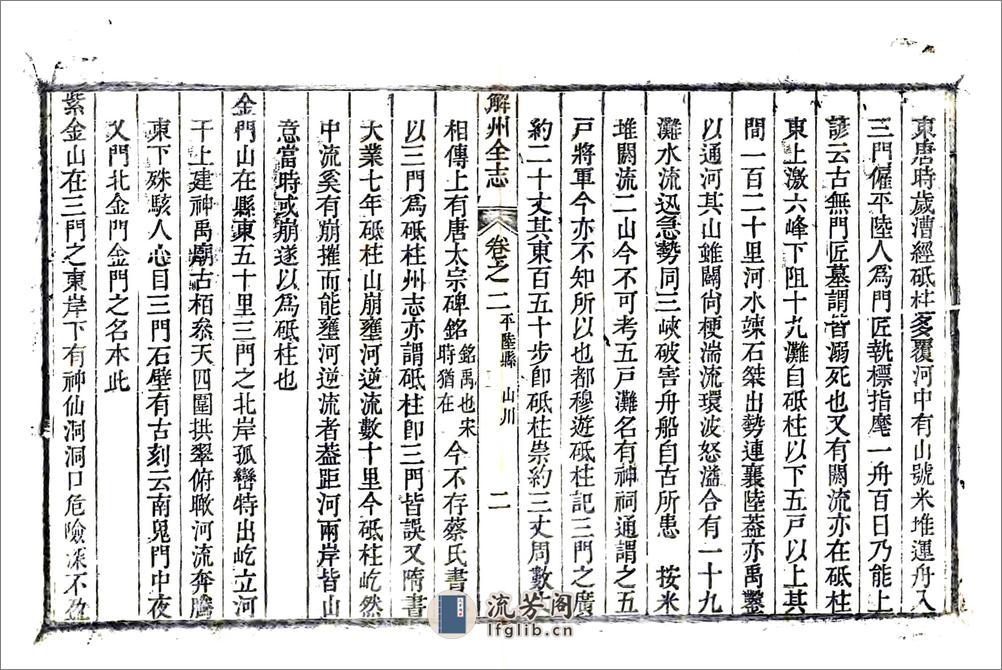 東唐時歲漕經砥柱多覆河中有山號米堆運舟入
三門僱平陸人為門匠執標指麾一舟百日乃能上
諺云古無門匠墓謂皆溺死也又有閼流亦在砥柱
東上激六峰下阻十九灘自砥柱以下五戶以上其
間一百二十里河水竦石桀出勢連襄陸葢亦禹鑿
以通河其山雖闢尙梗湍流環波怒溢合有一十九
灘水流迅急勢同三峽破害舟船自古所患 按米
堆閼流二山今不可考五戶灘名有神祠通謂之五
戶將軍今亦不知所以也都穆遊砥柱記三門之廣
約二十丈其東百五十步卽砥柱崇約三丈周數丈
相傳上有唐太宗碑銘銘禹也宋時猶在今不存蔡氏書傳
解州全志 卷之二 平陸縣 山川 二
以三門爲砥柱州志亦謂砥柱卽三門皆誤又隋書
大業七年砥柱山崩壅河逆流數十里今砥柱屹然
中流奚有崩摧而能壅河逆流者葢距河兩岸皆山
意當時或崩遂以爲砥柱也
金門山在縣東五十里三門之北岸孤巒特出屹立河
干上建神禹廟古栢叅天四圍拱翠俯瞰河流奔騰
東下殊駭人心目三門石壁有古刻云南鬼門中夜
又門北金門金門之名本此
紫金山在三門之東岸下有神仙洞洞口危險深不盈
流芳阁
lfglib.cn